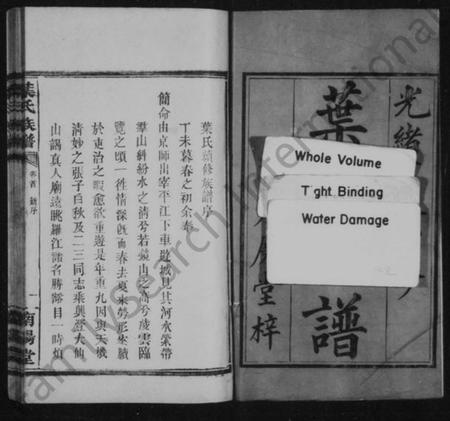 光緒
葉
譜
堂梓
Whole Volume
Tight Binding
Water Damage
葉氏續修族譜序
丁未暮春之初余奉
簡命由京師出宰平江下車遊城見其河水縈帶
羣山糾紛水之清兮若鏡山之高兮凌雲臨
覽之頃一往情深旣而春去夏來勞形案牘
於吏治之暇愈欲重遊是年重九因與天機
清妙之張子白秋及二三同志乘興登大仙
山謁真人廟遠眺羅江諸名勝豁目一時煩
葉氏族譜
卷首
序
一
南陽堂
FamilySearch International